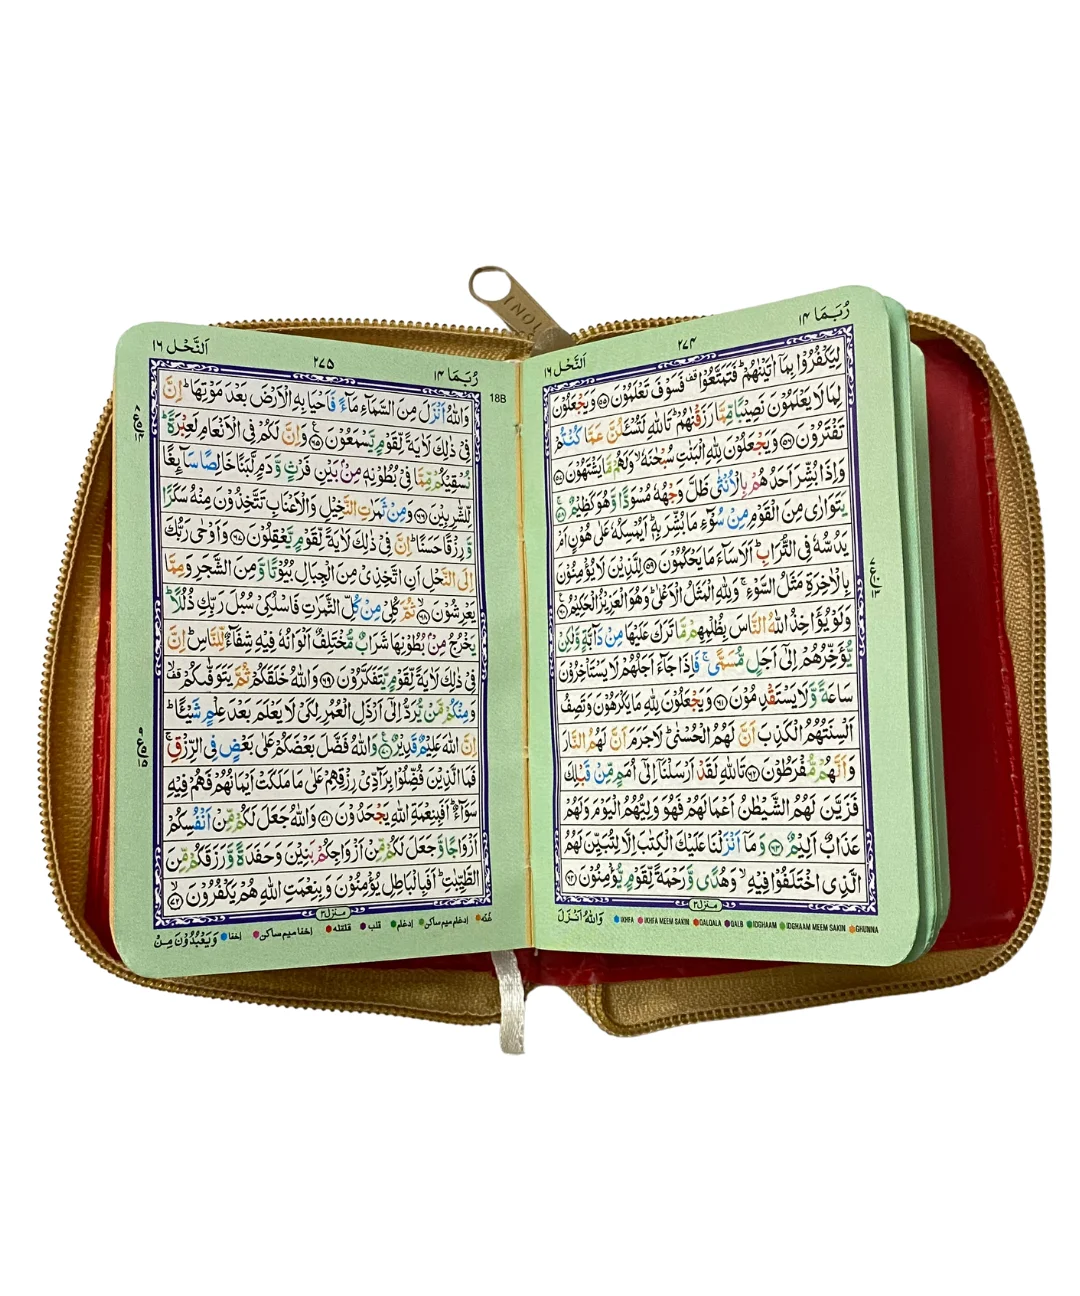 رُبَمَا ۱۴ ۲۷۴ اَلنَّحْل ۱۶
لِيَكْفُرُوْا بِمَاۤ اٰتَيْنٰهُمْ ؕ فَتَمَتَّعُوْا ۫ فَسَوْفَ تَعْلَمُوْنَ ۵۵ وَيَجْعَلُوْنَ
لِمَا لَا يَعْلَمُوْنَ نَصِيْبًا مِّمَّا رَزَقْنٰهُمْ ؕ تَاللّٰهِ لَتُسْـَٔلُنَّ عَمَّا كُنْتُمْ
تَفْتَرُوْنَ ۵۶ وَيَجْعَلُوْنَ لِلّٰهِ الْبَنٰتِ سُبْحٰنَهٗ ۙ وَلَهُمْ مَّا يَشْتَهُوْنَ ۵۷
وَاِذَا بُشِّرَ اَحَدُهُمْ بِالْاُنْثٰى ظَلَّ وَجْهُهٗ مُسْوَدًّا وَّهُوَ كَظِيْمٌ ۵۸
يَتَوَارٰى مِنَ الْقَوْمِ مِنْ سُوْٓءِ مَا بُشِّرَ بِهٖ ؕ اَيُمْسِكُهٗ عَلٰى هُوْنٍ اَمْ
يَدُسُّهٗ فِى التُّرَابِ ؕ اَلَا سَآءَ مَا يَحْكُمُوْنَ ۵۹ لِلَّذِيْنَ لَا يُؤْمِنُوْنَ
بِالْاٰخِرَةِ مَثَلُ السَّوْءِ ۚ وَلِلّٰهِ الْمَثَلُ الْاَعْلٰى ؕ وَهُوَ الْعَزِيْزُ الْحَكِيْمُ ۶۰
وَلَوْ يُؤَاخِذُ اللّٰهُ النَّاسَ بِظُلْمِهِمْ مَّا تَرَكَ عَلَيْهَا مِنْ دَآبَّةٍ وَّلٰكِنْ
يُّؤَخِّرُهُمْ اِلٰٓى اَجَلٍ مُّسَمًّى ۚ فَاِذَا جَآءَ اَجَلُهُمْ لَا يَسْتَاْخِرُوْنَ
سَاعَةً وَّلَا يَسْتَقْدِمُوْنَ ۶۱ وَيَجْعَلُوْنَ لِلّٰهِ مَا يَكْرَهُوْنَ وَتَصِفُ
اَلْسِنَتُهُمُ الْكَذِبَ اَنَّ لَهُمُ الْحُسْنٰى ؕ لَا جَرَمَ اَنَّ لَهُمُ النَّارَ
وَاَنَّهُمْ مُّفْرَطُوْنَ ۶۲ تَاللّٰهِ لَقَدْ اَرْسَلْنَاۤ اِلٰٓى اُمَمٍ مِّنْ قَبْلِكَ
فَزَيَّنَ لَهُمُ الشَّيْطٰنُ اَعْمَالَهُمْ فَهُوَ وَلِيُّهُمُ الْيَوْمَ وَلَهُمْ
عَذَابٌ اَلِيْمٌ ۶۳ وَمَاۤ اَنْزَلْنَا عَلَيْكَ الْكِتٰبَ اِلَّا لِتُبَيِّنَ لَهُمُ
الَّذِى اخْتَلَفُوْا فِيْهِ ۙ وَهُدًى وَّرَحْمَةً لِّقَوْمٍ يُّؤْمِنُوْنَ ۶۴
منزل ۳
وَاللّٰهُ اَنْزَلَ IKHFA IKHFA MEEM SAKIN QALQALA QALB IDGHAAM IDGHAAM MEEM SAKIN GHUNNA
رُبَمَا ۱۴ ۲۷۵ اَلنَّحْل ۱۶
18B
وَاللّٰهُ اَنْزَلَ مِنَ السَّمَآءِ مَآءً فَاَحْيَا بِهِ الْاَرْضَ بَعْدَ مَوْتِهَا ؕ اِنَّ
فِىْ ذٰلِكَ لَاٰيَةً لِّقَوْمٍ يَّسْمَعُوْنَ ۶۵ وَاِنَّ لَكُمْ فِى الْاَنْعَامِ لَعِبْرَةً ؕ
نُسْقِيْكُمْ مِّمَّا فِىْ بُطُوْنِهٖ مِنْۢ بَيْنِ فَرْثٍ وَّدَمٍ لَّبَنًا خَالِصًا سَآئِغًا
لِّلشّٰرِبِيْنَ ۶۶ وَمِنْ ثَمَرٰتِ النَّخِيْلِ وَالْاَعْنَابِ تَتَّخِذُوْنَ مِنْهُ سَكَرًا
وَّرِزْقًا حَسَنًا ؕ اِنَّ فِىْ ذٰلِكَ لَاٰيَةً لِّقَوْمٍ يَّعْقِلُوْنَ ۶۷ وَاَوْحٰى رَبُّكَ
اِلَى النَّحْلِ اَنِ اتَّخِذِىْ مِنَ الْجِبَالِ بُيُوْتًا وَّمِنَ الشَّجَرِ وَمِمَّا
يَعْرِشُوْنَ ۶۸ ثُمَّ كُلِىْ مِنْ كُلِّ الثَّمَرٰتِ فَاسْلُكِىْ سُبُلَ رَبِّكِ ذُلُلًا ؕ
يَخْرُجُ مِنْۢ بُطُوْنِهَا شَرَابٌ مُّخْتَلِفٌ اَلْوَانُهٗ فِيْهِ شِفَآءٌ لِّلنَّاسِ ؕ اِنَّ
فِىْ ذٰلِكَ لَاٰيَةً لِّقَوْمٍ يَّتَفَكَّرُوْنَ ۶۹ وَاللّٰهُ خَلَقَكُمْ ثُمَّ يَتَوَفّٰىكُمْ ۙ
وَمِنْكُمْ مَّنْ يُّرَدُّ اِلٰٓى اَرْذَلِ الْعُمُرِ لِكَىْ لَا يَعْلَمَ بَعْدَ عِلْمٍ شَيْـًٔا ؕ
اِنَّ اللّٰهَ عَلِيْمٌ قَدِيْرٌ ۷۰ وَاللّٰهُ فَضَّلَ بَعْضَكُمْ عَلٰى بَعْضٍ فِى الرِّزْقِ ۚ
فَمَا الَّذِيْنَ فُضِّلُوْا بِرَآدِّىْ رِزْقِهِمْ عَلٰى مَا مَلَكَتْ اَيْمَانُهُمْ فَهُمْ فِيْهِ
سَوَآءٌ ؕ اَفَبِنِعْمَةِ اللّٰهِ يَجْحَدُوْنَ ۷۱ وَاللّٰهُ جَعَلَ لَكُمْ مِّنْ اَنْفُسِكُمْ
اَزْوَاجًا وَّجَعَلَ لَكُمْ مِّنْ اَزْوَاجِكُمْ بَنِيْنَ وَحَفَدَةً وَّرَزَقَكُمْ مِّنَ
الطَّيِّبٰتِ ؕ اَفَبِالْبَاطِلِ يُؤْمِنُوْنَ وَبِنِعْمَتِ اللّٰهِ هُمْ يَكْفُرُوْنَ ۷۲
منزل ۳
غُنّه اِدغام میم ساکن اِدغام قلب قلقله اخفا میم ساکن اِخفا وَيَعْبُدُوْنَ مِنْ